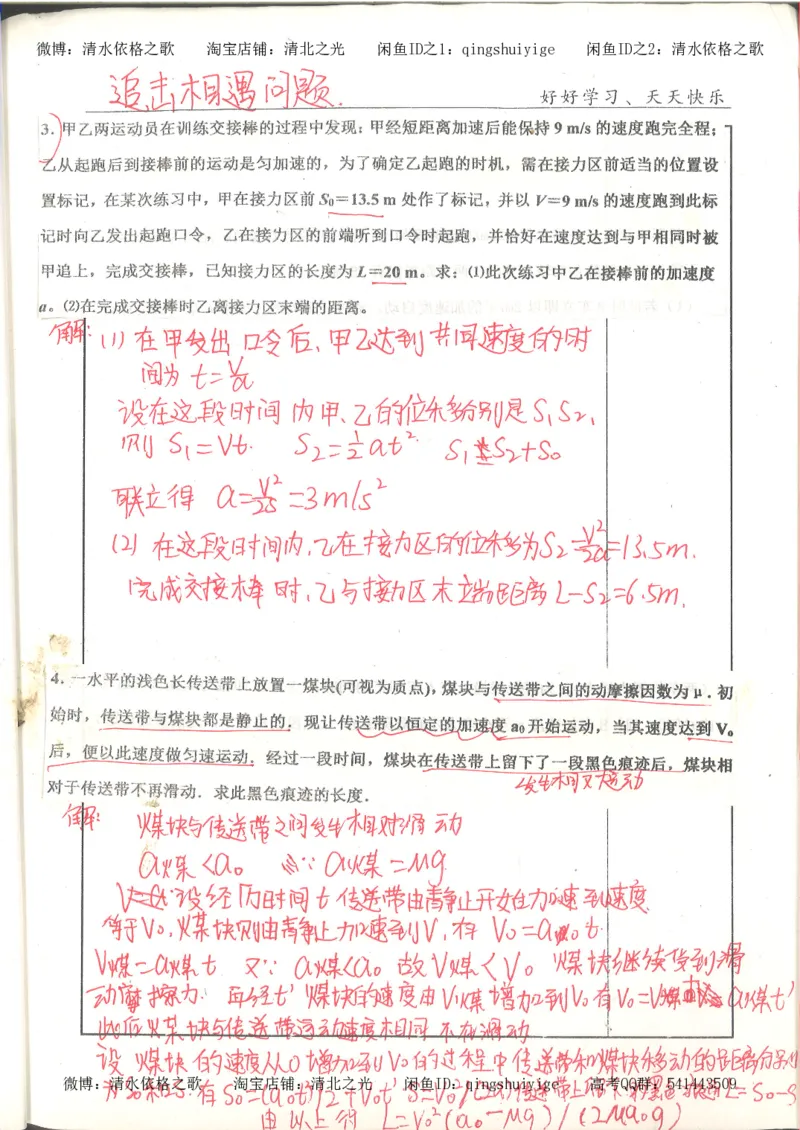 微博：清水依格之歌 淘宝店铺：清北之光 闲鱼ID之1：qingshuiyige 闲鱼ID之2：清水依格之歌
追击相遇问题.
好好学习、天天快乐
3. 甲乙两运动员在训练交接棒的过程中发现：甲经短距离加速后能保持 9 m/s 的速度跑完全程；
乙从起跑后到接棒前的运动是匀加速的，为了确定乙起跑的时机，需在接力区前适当的位置设
置标记，在某次练习中，甲在接力区前 S₀＝13.5 m 处作了标记，并以 V＝9 m/s 的速度跑到此标
记时向乙发出起跑口令，乙在接力区的前端听到口令时起跑，并恰好在速度达到与甲相同时被
甲追上，完成交接棒，已知接力区的长度为 L＝20 m。求：⑴此次练习中乙在接棒前的加速度
a。⑵在完成交接棒时乙离接力区末端的距离。
解：(1) 在甲发出口令后、甲乙达到共同速度的时
间为 t=V/a
设在这段时间内甲、乙的位移分别是S₁S₂,
则 S₁=Vt. S₂=½at² S₁=S₂+S₀
联立得 a=V²/2S=3m/s²
(2) 在这段时间内,乙在接力区的位移为S₂=V²/2a=13.5m.
完成交接棒时,乙与接力区末端距离 L-S₂=6.5m.
4. 一水平的浅色长传送带上放置一煤块(可视为质点)，煤块与传送带之间的动摩擦因数为 μ．初
始时，传送带与煤块都是静止的．现让传送带以恒定的加速度 a₀ 开始运动，当其速度达到 V₀
后，便以此速度做匀速运动．经过一段时间，煤块在传送带上留下了一段黑色痕迹后，煤块相
对于传送带不再滑动．求此黑色痕迹的长度．
发生相对运动
解：煤块与传送带之间发生相对滑动
a煤<a₀ ∵ a煤=μg
设经历时间 t 传送带由静止开始加速到速度
等于V₀,煤块则由静止加速到V,有 V₀=a₀t
V煤=a煤t 又∵ a煤<a₀ 故V煤<V₀ 煤块继续受到滑
动摩擦力. 再经t' 煤块的速度由V煤增加到V₀有V₀=V煤+a煤t'
此后煤块与传送带运动速度相同 不在滑动
设 煤块的速度从0增加到V₀的过程中传送带和煤块移动的距离分别
为S₀和S.有S₀=(a₀t²)/2+V₀t' 传送带上 L=S₀-S
由以上得 L=V₀²(a₀-μg)/(2μa₀g)
微博：清水依格之歌 淘宝店铺：清北之光 闲鱼ID：qingshuiyige 高考QQ群：541443509